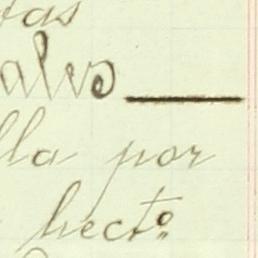 tas
alvo
lla por
hecto.